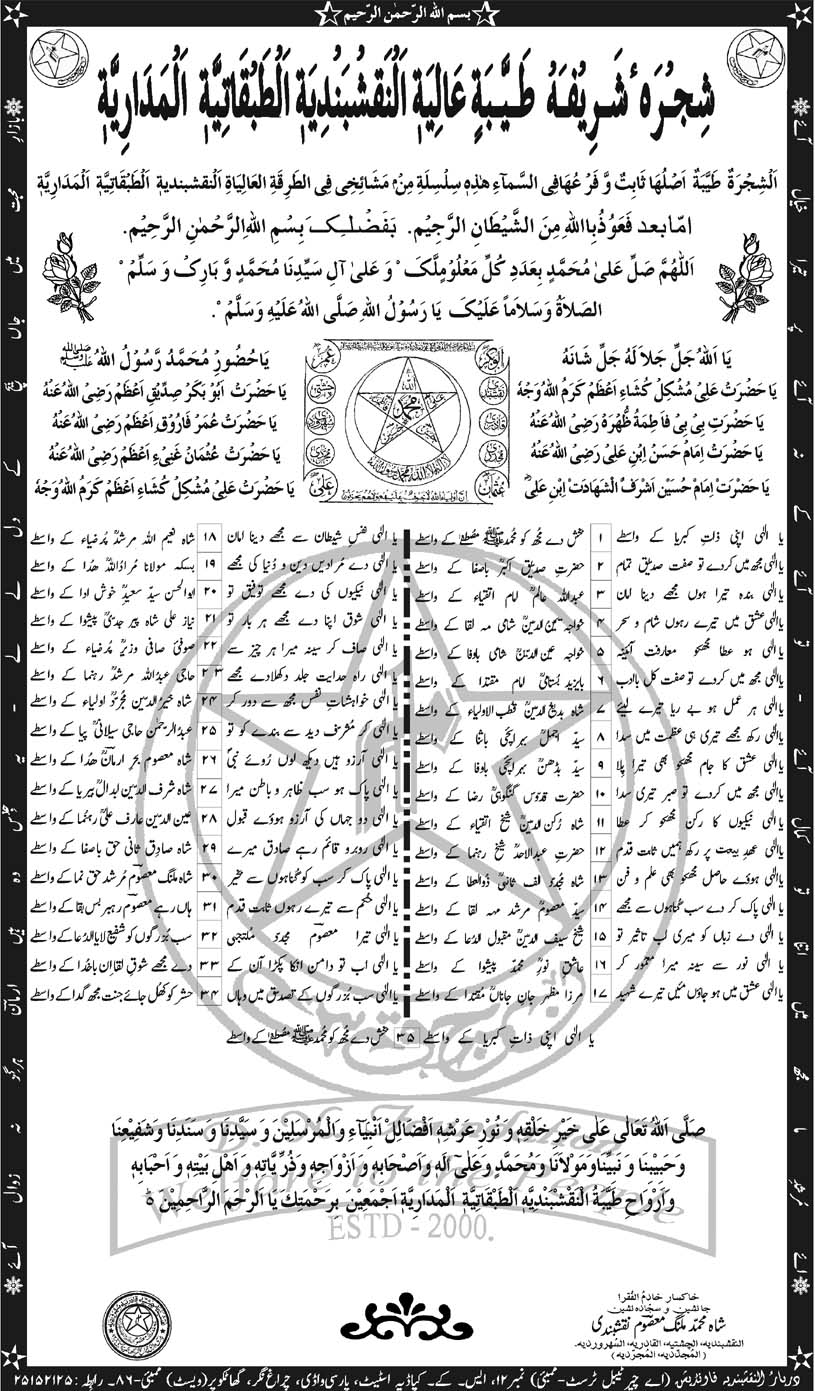 بسم اللہ الرّحمٰن الرّحیم
شِجْرَہٴ شَرِیفَہْ طَیِّبَۃٍ عَالِیَۃِ اَلْنَقْشْبَنْدِیَۃِ اَلْطَبُقَاتِیَّۃِ اَلْمَدَارِیَّۃِ
اَلْشِجْرَۃٌ طَیِّبَۃٌ اَصْلُھَا ثَابِتٌ وَّفَرْعُھَافِی السَّمَآءِ ھٰذِہٖ سِلْسِلَۃِ مِنْ مَشَائِخِی فِی الطَرِقَۃِ العَالِیَاۃِ اَلنَقشبندیۃِ اَلْطَبْقَاتِیَّۃِ اَلْمَدَارِیَّۃِ
امّا بعد فَعَوُذُ بِااللہِ مِنَ الشَّیْطَانِ الرَّجِیْم. بَفَضْلِکَ بِسْمِ اللہِ الرَّحْمٰنِ الرَّحِیْم.
اَللّٰھُمَّ صَلِّ عَلیٰ مُحَمَّدٍ بِعَدَدِ کُلِّ مَعْلُوْمٍ لَّکَ وَ عَلیٰ آلِ سَیِّدِنَا مُحَمَّدٍ وَّ بَارِکْ وَ سَلِّمْ
الصَلاَۃُ وَسَلَاماً عَلَیْکَ یَا رَسُوْلُ اللہِ صَلَّی اللہُ عَلَیْہِ وَسَلَّمْ.
یَا اَللہُ جَلَّ جَلَا لَہُ جَلَّ شَانَہُ
یَا حَضَرتْ عَلِیْ مُشْکِلْ کُشَاءِ اَعْظَمْ کَرَمُ اللہُ وَجْہُ
یَا حَضَرتِ بِیْ بِیْ فَاطِمَۃُ ظُھْرَہ رَضِیُ اللہُ عَنْہُ
یَا حَضَرتُ اِمَام حَسَنُ اِبْنِ عَلِی رَضِیُ اللہُ عَنْہُ
یَا حَضَرتْ اِمَامْ حُسَیْن اَشْرَفُ الْشَھَادَتْ اِبْنِ عَلِی
یَا حُضُورْ مُحَمَّدُ رَّسُوْلُ اللہُ ﷺ
یَا حَضْرَتْ اَبُوْ بَکَرْ صِدِّیق اَعْظَمْ رَضِیُ اللہُ عَنْہُ
یَا حَضْرَتْ عُمَرْ فَارُوْقِ اَعْظَمْ رَضِیُ اللہُ عَنْہُ
یَا حَضْرَتْ عُثْمَانْ غَنِیءِ اَعْظَمْ رَضِیُ اللہُ عَنْہُ
یَا حَضْرَتْ عَلِیْ مُشْکِلْ کُشَاءِ اَعْظَمْ کَرَمُ اللہُ وَجْہُ
یا الٰہی اپنی ذاتِ کبریا کے واسطے ۱ بخش دے مُجھ کو محمّد ﷺ مُصطفٰےؐ کے واسطے
یا الٰہی مجھ میں کردے تو صفت صدیق تمام ۲ حضرتِ صدیق اکبرؓ باصفا کے واسطے
یا الٰہی بندہ تیرا ہوں مجھے دینا امان ۳ عبداللہ عالمؒ امام اتقیاء کے واسطے
یاالٰہی عشق میں تیرے رہوں شام و سحر ۴ خواجہ یمین الدینؒ شامی مہ لقا کے واسطے
یا الٰہی ہو عطا مجھکو معارفت آئینہ ۵ خواجہ عین الدینؒ شامی باوفا کے واسطے
یا الٰہی مجھ میں کردے تو صفت کل بادب ۶ بایزید بُسطامیؒ امام مقتدا کے واسطے
یا الٰہی ہر عمل ہو بے ریا تیرے لیئے ۷ شاہ بدیع الدینؒ قطب الاولیاء کے واسطے
یا الٰہی رکھ مجھے تیری ہی عظمت میں سدا ۸ سیّد اجملؒ بہرائچی باثنا کے واسطے
یا الٰہی عشق کا جام مجھکو بھی تیرا پلا ۹ سیّد بڈھنؒ بہرائچی باوفا کے واسطے
یا الٰہی مجھ میں کردے تو صبر تیری سدا ۱۰ حضرت قدّوس گنگوہیؒ رضا کے واسطے
یا الٰہی نیکیوں کا رکن مجھکو کر عطا ۱۱ شاہ رُکن الدینؒ شیخ اتقیاء کے واسطے
یا الٰہی عہدِ بیعت پر رکھ ہمیں ثابت قدم ۱۲ حضرتِ عبدالاحدؒ شیخ رہنما کے واسطے
یا الٰہی ہووے حاصل مجھکو بھی علم و فن ۱۳ شاہ مجدّدِ الف ثانیؒ ذوالعطا کے واسطے
یا الٰہی پاک کر دے سب گناہوں سے مجھے ۱۴ سیّد معصومؒ مرشد مہہ لقا کے واسطے
یا الٰہی دے زباں کو میری لب تاثیر تو ۱۵ شیخ سیف الدینؒ مقبول الدّعا کے واسطے
یا الٰہی نور سے سینہ میرا معمور کر ۱۶ عاشقِ نورؒ محمّد پیشوا کے واسطے
یاالٰہی عشق میں ہو جاؤں مَیں تیرے شہید ۱۷ مرزا مظہر جانِ جاناںؒ مُقتدا کے واسطے
یا الٰہی نفسِ شیطان سے مجھے دینا امان ۱۸ شاہ نعیم اللہ مرشدؒ پُرضیاء کے واسطے
یا الٰہی دے مُرادیں دین و دُنیا کی مجھے ۱۹ بسکہ مولانا مراداللہؒ ھدا کے واسطے
یا الٰہی نیکیوں کی دے مجھے توفیق تو ۲۰ ابوالحسن سیّد سعیدؒ خوش ادا کے واسطے
یا الٰہی شوق اپنا دے مجھے ہر بار تو ۲۱ نیاز علی شاہ پیر جدیؒ پیشوا کے واسطے
یا الٰہی صاف کر سینہ میرا ہر چیز سے ۲۲ صوفیؒ صافی وزیرؒ پُرضیاء کے واسطے
یا الٰہی راہ حدایت جلد دکھلادے مجھے ۲۳ حاجی عبدُاللہ مرشدؒ رہنما کے واسطے
یا الٰہی خواہشاتِ نفس مجھ سے دور کر ۲۴ شاہ خیرُالدین مُجرّدؒ اولیاء کے واسطے
یا الٰہی کر مُشرف دید سے بندے کو تو ۲۵ عبدُالرحمٰنؒ حاجی سیلانیؒ پیا کے واسطے
یا الٰہی آرزو ہیں دیکھ لوں رُوئے نبیؐ ۲۶ شاہ معصوم بحر ارمانؒ ھدا کے واسطے
یا الٰہی پاک ہو سب ظاہر و باطن میرا ۲۷ شاہ شرف الدین ابدالؒ بیریا کے واسطے
یا الٰہی دو جہاں کی آرزو ہووے قبول ۲۸ عین الدین عارف علیؒ رہنُما کے واسطے
یا الٰہی روبرو قائم رہے صادق میرے ۲۹ شاہ صادقِ ثانی حق باصفا کے واسطے
یا الٰہی پاک کر سب کو گناہوں سے بخیر ۳۰ شاہ ملنگ معصومؒ مُرشد حق نما کے واسطے
یا الٰہی حُکم سے تیرے رہوں ثابت قدم ۳۱ ہاں رہے معصومؒ رہبر بس بقا کے واسطے
یا الٰہی تیرا معصومؒ مجددی ملتجی ۳۲ سب بزرگوں کو شفیع لایا الدُعا کے واسطے
یا الٰہی اب تو دامن انکا پکڑا آن کے ۳۳ دے مجھے شوقِ لقا ان باخُدا کے واسطے
یا الٰہی سب بُزرگوں کے تصدیق میں وہاں ۳۴ حشر کو کھل جائے جنت مجھ گدا کے واسطے
یا الٰہی اپنی ذاتِ کبریا کے واسطے ۳۵ بخش دے مُجھ کو مُحمّد ﷺ مُصطفٰےؐ کے واسطے
صَلَّی اللہُ تَعَالٰی عَلٰی خَیْرِ خَلْقِہٖ وَ نُوْرِ عَرْشِہٖ اَفْضَالِلْ اَنْبِیَآءِ وَالْمُرْسَلِیْنَ وَ سَیِّدِنَا وَ سَنَدِنَا وَ شَفِیْعِنَا
وَ حَبِیْبِنَا وَ نَبِیِّنَا وَمَوْلَانَا وَ مُحَمَّدٍ وَ عَلٰیٓ آلِہٖ وَاَصْحَابِہٖ وَ اَزْوَاجِہٖ وَذُرِّیَّاتِہٖ وَ اَھْلِ بَیْتِہٖ وَ اَحْبَابِہٖ
وَ اَرْوَاحِ طَیِّبَۃُ الْنَقْشْبَنْدِیَّہِ اَلْطَبْقَاتِیَّۃِ اَلْمَدَارِیَّۃِ اَجْمَعِیْنَ بِرَحْمَتِکَ یَا اَلرْحَمَ الرَّاحِمِیْنَ
Welfare to the People
ESTD - 2000.
خاکسار خادِمُ الفُقرا
جانشین و سجّادہ نشین
شاہ محمّد ملنگ معصومؔ نقشبندی
النقشبندیہ، الچشتیہ، القادریہ، السُہروردیہ،
(المُجدّدیہ، المُجرّدیہ)
دربار النقشبندیہ فاؤنڈیشن (اے چیرٹیبل ٹرسٹ-ممبئی) نمبر ۱۲، ایس۔ کے۔ کپاڈیہ اسٹیٹ، پارسی واڈی، چراغ نگر، گھاٹکوپر (ویسٹ) ممبئی-۸۶۔ رابطہ: ۲۵۱۵۲۱۲۵